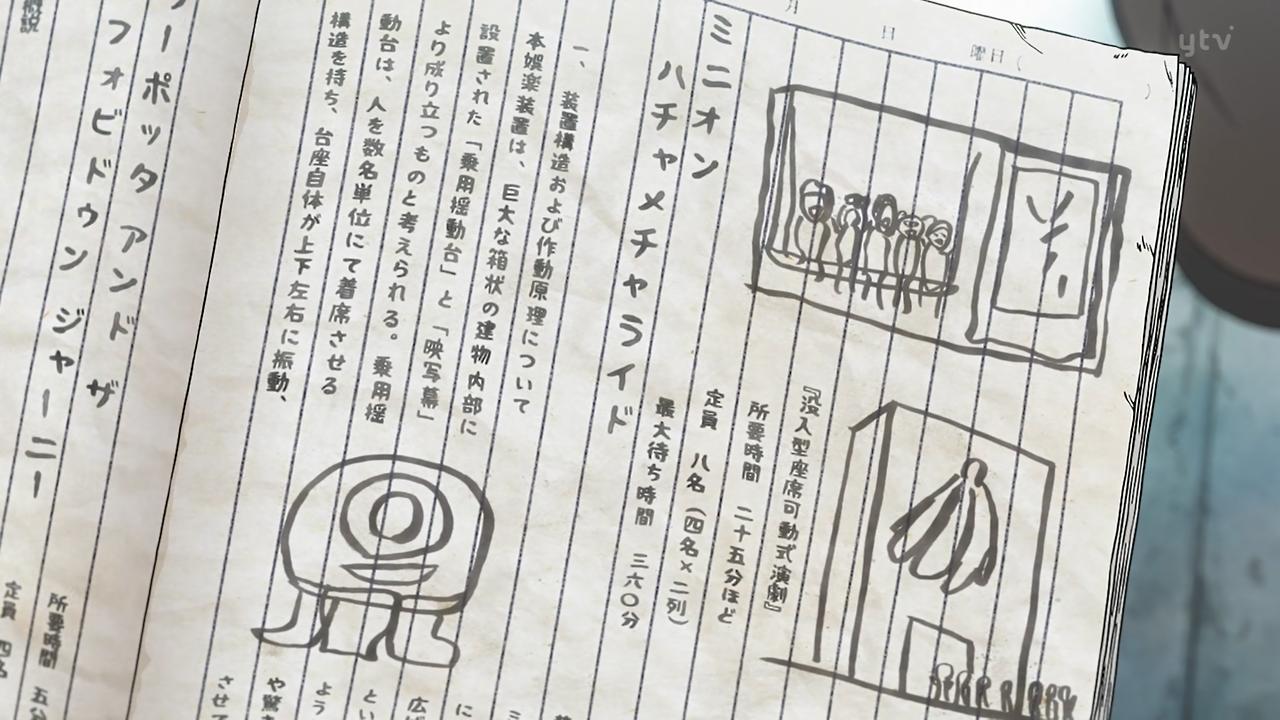 ytv
月
日
曜日（
ミニオン
ハチャメチャライド
『没入型座席可動式演劇』
所要時間　二十五分ほど
定員　八名（四名×二列）
最大待ち時間　三六〇分
一、装置構造および作動原理について
本娯楽装置は、巨大な箱状の建物内部に
設置された「乗用揺動台」と「映写幕」
より成り立つものと考えられる。乗用揺
動台は、人を数名単位にて着席させる
構造を持ち、台座自体が上下左右に振動、
に
とい
よう
や驚
させて
ーポッタ アンド ザ
フォビドゥン ジャーニー
所要時間　五分
定員　四名
解説